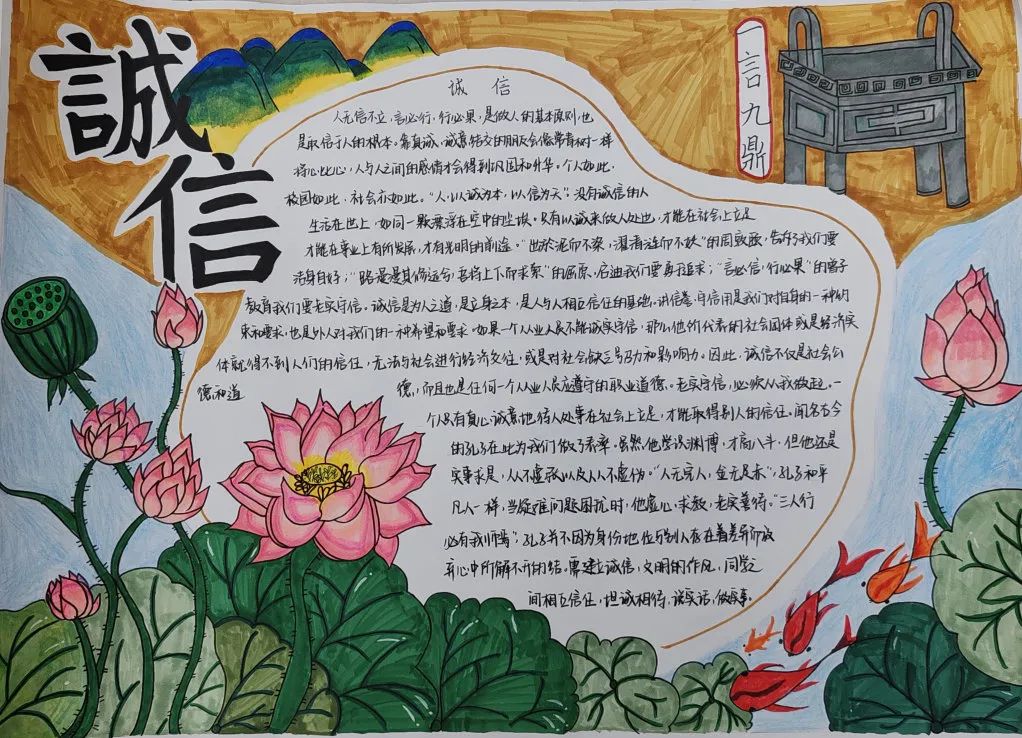 誠信
一言九鼎
诚 信
人无信不立，言必行，行必果，是做人的基本原则，也
是取信于人的根本。靠真诚、诚意结交的朋友会像常青树一样
将心比心，人与人之间的感情才会得到巩固和升华。个人如此，
校园如此，社会亦如此。“人以诚为本，以信为天”，没有诚信的人
生活在世上，如同一颗漂浮在空中的尘埃。只有以诚来做人处世，才能在社会上立足
才能在事业上有所发展，才有光明的前途。“出於泥而不染，濯清涟而不妖”的周敦颐，告诉了我们要
洁身自好；“路漫漫其修远兮，吾将上下而求索”的屈原，启迪我们要勇于追求；“言必信，行必果”的曾子
教育我们要老实守信。诚信是为人之道，是立身之本，是人与人相互信任的基础。讲信誉、守信用是我们对自身的一种约
束和要求，也是外人对我们的一种希望和要求。如果一个从业人员不能诚实守信，那么他所代表的社会团体或是经济实
体就得不到人们的信任，无法与社会进行经济交往，或是对社会缺乏号召力和影响力。因此，诚信不仅是社会公
德和道 德，而且也是任何一个从业人员应遵守的职业道德。老实守信，必须从我做起。一
个人只有真心诚意地待人处事在社会上立足，才能取得别人的信任。闻名古今
的孔子在此为我们做了表率。虽然他学识渊博，才高八斗，但他还是
实事求是，从不虚张以及从不虚伪。“人无完人，金无足赤”，孔子和平
凡人一样，当疑难问题困扰时，他虚心，求教，老实善待。“三人行
必有我师焉”，孔子并不因为身份地位与别人存在着差异而成
有心中所解不开的结。要建立诚信，文明的作风，同学之
间相互信任，坦诚相待，说实话，做实事。